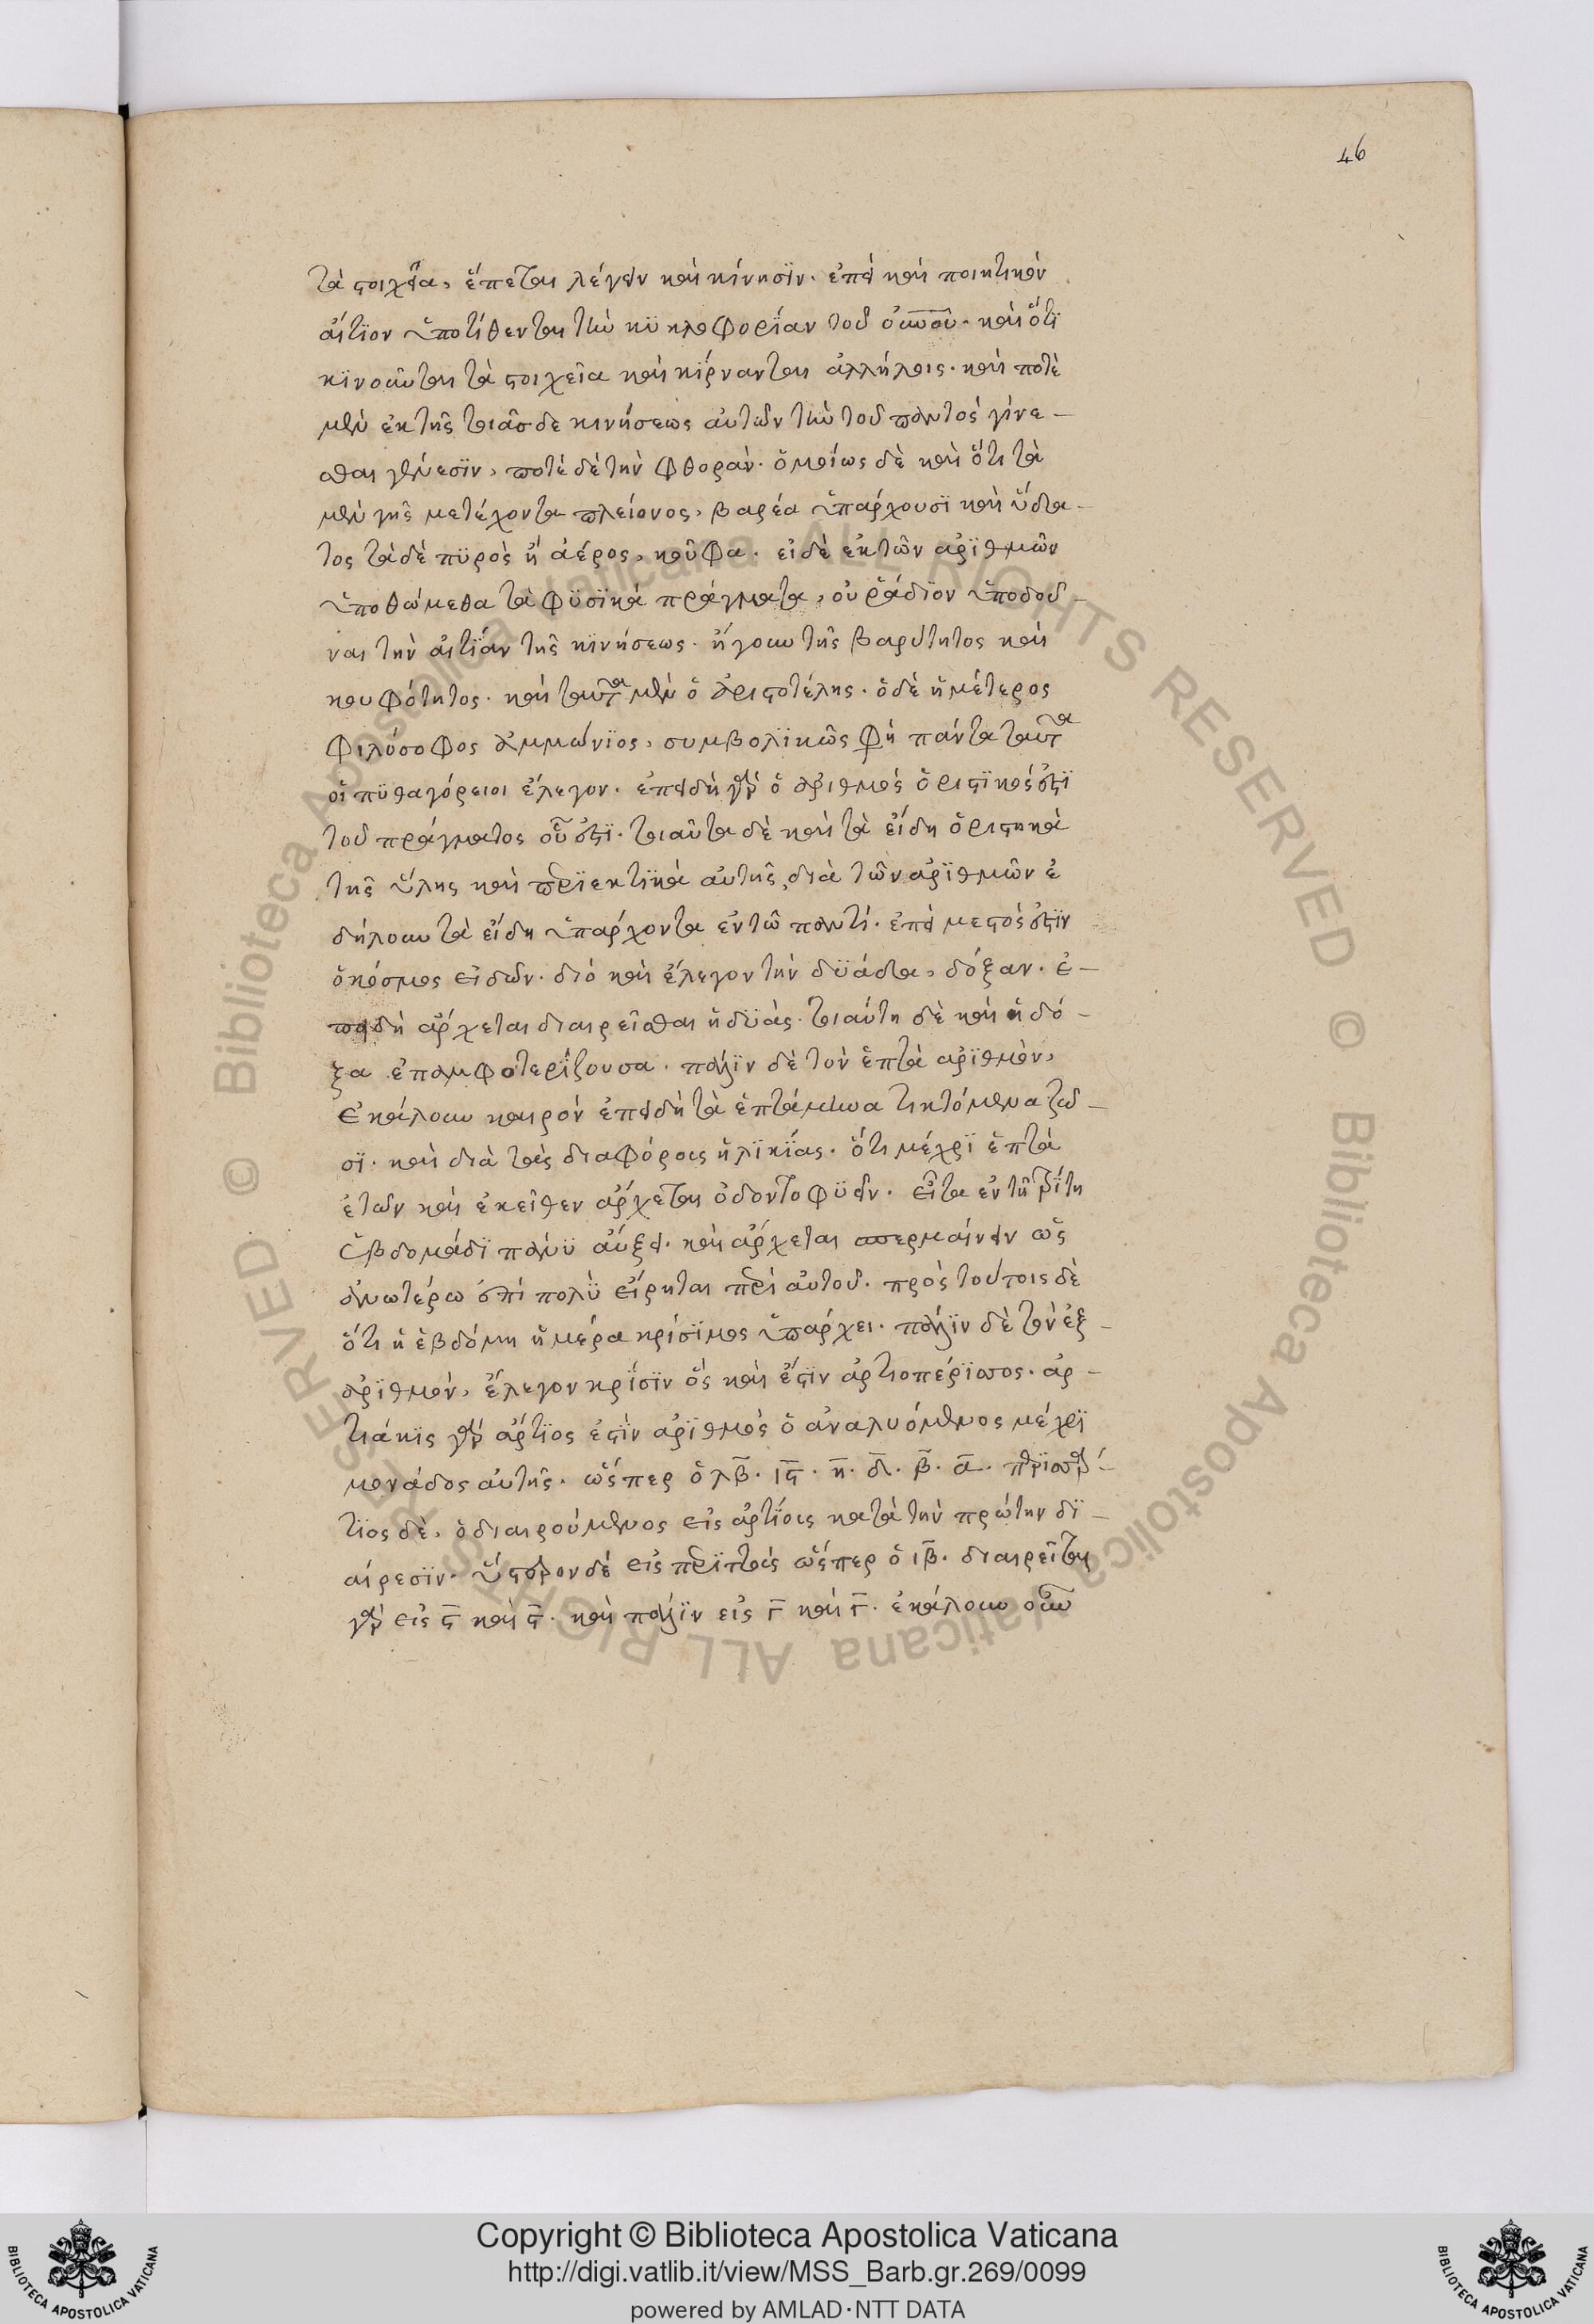 46
τὰ στοιχεῖα, ἕπεται λέγειν καὶ κίνησϊν. ἐπεὶ καὶ ποιητικὸν
αἴτϊον ὑποτίθενται τὴν κϋκλοφορΐαν τοῦ οὐνοῦ. καὶ ὅτϊ
κϊνοῦνται τὰ στοιχεῖα καὶ κίρνανται ἀλλήλοις. καὶ ποτὲ
μὲν ἐκ τῆς τοιᾶσδε κινήσεως αὐτῶν τὴν τοῦ παντὸς γίνε-
σθαι γένεσϊν, ποτὲ δὲ τὴν φθορὰν. ὁμοίως δὲ καὶ ὅτι τὰ
μὲν γῆς μετέχοντα πλείονος, βαρέα ὑπάρχουσϊ καὶ ὕδα-
τος τὰ δὲ πϋρὸς ἢ ἀέρος, κοῦφα. εἰ δὲ ἐκ τῶν ἀρϊθμῶν
ὑποθώμεθα τὰ φϋσϊκὰ πράγματα, οὐ ῥάδϊον ὑποδοῦ-
ναι τὴν αἰτΐαν τῆς κϊνήσεως. ἤγουν τῆς βαρύτητος καὶ
κουφότητος. καὶ ταῦτα μὲν ὁ ἀριστοτέλης. ὁ δὲ ἡμέτερος
φιλόσοφος ἀμμώνϊος, συμβολϊκῶς φη πάντα ταῦτα
οἱ πϋθαγόρειοι ἔλεγον. ἐπειδὴ γὰρ ὁ ἀριθμὸς ὁριστϊκός ἐστϊ
τοῦ πράγματος οὗ ἐστϊ. τοιαῦτα δὲ καὶ τὰ εἴδη ὁριστηκὰ
τῆς ὕλης καὶ περϊεκτϊκὰ αὐτῆς, διὰ τῶν ἀρϊθμῶν ἐ
δήλουν τὰ εἴδη ὑπάρχοντα ἐν τῶ παντί. ἐπεὶ μεστός ἐστϊν
ὁ κόσμος εἰδῶν. διὸ καὶ ἔλεγον τὴν δϋάδα, δόξαν. ἐ-
πειδὴ ἄρχεται διαιρεῖσθαι ἡ δϋὰς. τοιαύτη δὲ καὶ ἡ δό-
ξα ἐπαμφοτερΐζουσα. πάλϊν δὲ τὸν ἑπτὰ ἀρϊθμὸν,
ἐκάλουν καιρὸν ἐπειδὴ τὰ ἑπτάμηνα τικτόμενα ζῶ-
σϊ. καὶ διὰ τὰς διαφόροις ἡλϊκΐας. ὅτι μέχρϊ ἑπτὰ
ἐτῶν καὶ ἐκεῖθεν ἄρχεται ὀδοντοφϋεῖν. εἶτα ἐν τῆ τρίτη
ἑβδομάδϊ πάνϋ αὔξει. καὶ ἄρχεται σπερμαίνειν ὡς
ἀνωτέρω ἐπὶ πολϋ εἴρηται περὶ αὐτοῦ. πρὸς τούτοις δὲ
ὅτι ἡ ἑβδόμη ἡμέρα κρίσϊμος ὑπάρχει. πάλϊν δὲ τὸν ἓξ
ἀρϊθμὸν, ἔλεγον κρΐσϊν ὅς καὶ ἔστϊν ἀρτιοπέρϊσσος. ἀρ-
τιάκϊς γὰρ ἄρτϊος ἐστϊν ἀρϊθμὸς ὁ ἀναλυόμενος μέχρϊ
μονάδος αὐτῆς. ὥσπερ ὁ λβ. ιϛ. η. δ. β. α. περϊσάρ-
τϊος δὲ, ὁ διαιρούμενος εἰς ἀρτΐοις κατὰ τὴν πρώτην δϊ-
αίρεσϊν. ὕστερον δὲ εἰς περϊττοὺς ὥσπερ ὁ ιβ. διαιρεῖται
γὰρ εἰς ϛ καὶ ϛ. καὶ πάλϊν εἰς γ καὶ γ. ἐκάλουν οὖν
Copyright © Biblioteca Apostolica Vaticana
http://digi.vatlib.it/view/MSS_Barb.gr.269/0099
powered by AMLAD·NTT DATA
BIBLIOTECA APOSTOLICA VATICANA
BIBLIOTECA APOSTOLICA VATICANA
© Biblioteca Apostolica Vaticana ALL RIGHTS RESERVED
© Biblioteca Apostolica Vaticana ALL RIGHTS RESERVED